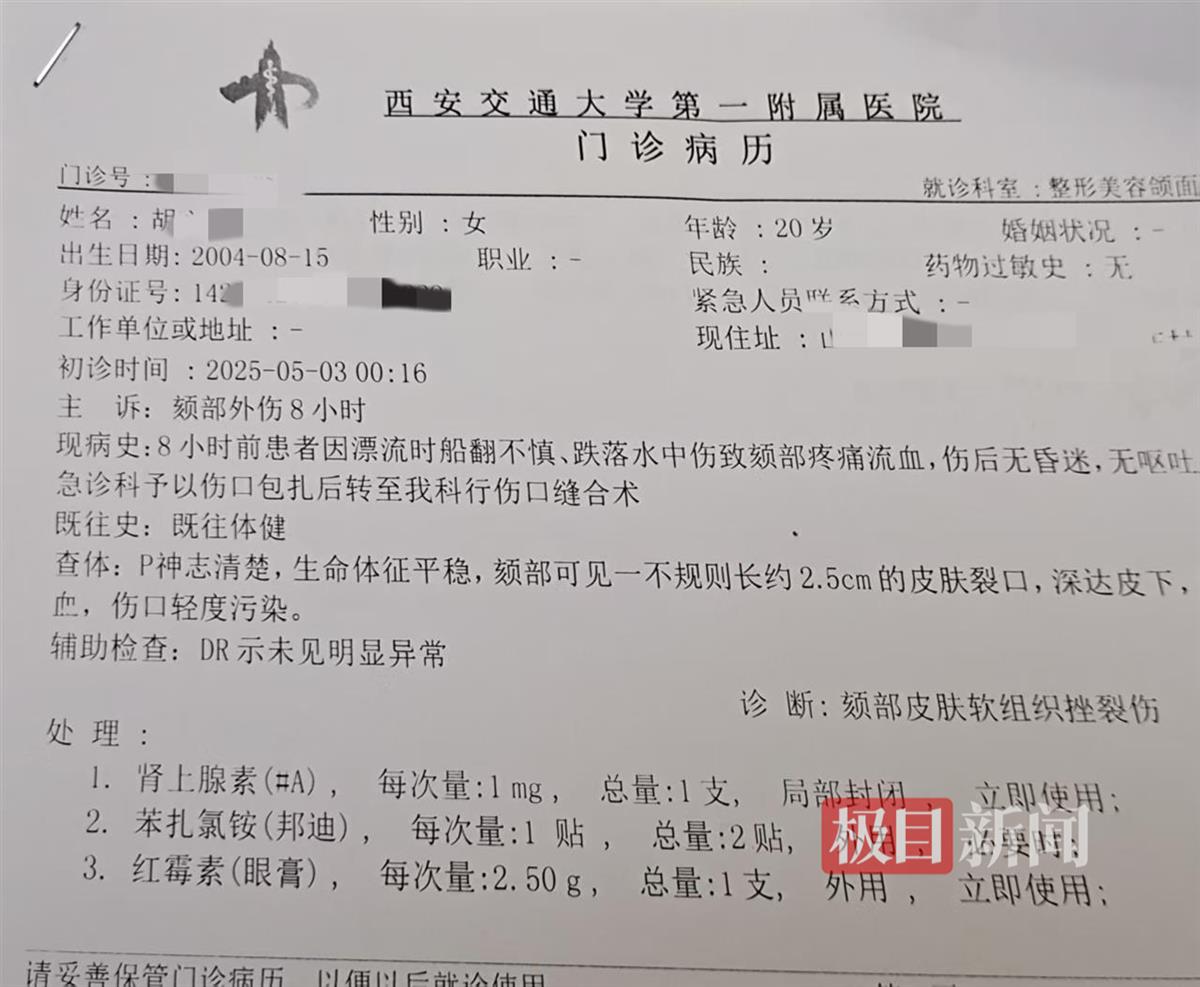 西安交通大学第一附属医院
门诊病历
门诊号：
就诊科室：整形美容颌面
姓名：胡 性别：女 年龄：20岁 婚姻状况：-
出生日期：2004-08-15 职业：- 民族： 药物过敏史：无
身份证号：142 紧急人员联系方式：-
工作单位或地址：- 现住址：
初诊时间：2025-05-03 00:16
主 诉：颏部外伤8小时
现病史：8小时前患者因漂流时船翻不慎、跌落水中伤致颏部疼痛流血，伤后无昏迷，无呕吐
急诊科予以伤口包扎后转至我科行伤口缝合术
既往史：既往体健
查体：P神志清楚，生命体征平稳，颏部可见一不规则长约2.5cm的皮肤裂口，深达皮下，
血，伤口轻度污染。
辅助检查：DR示未见明显异常
诊 断：颏部皮肤软组织挫裂伤
处 理：
1. 肾上腺素(#A)， 每次量:1mg， 总量:1支， 局部封闭， 立即使用；
2. 苯扎氯铵(邦迪)， 每次量:1 贴， 总量:2贴， 外用， 必要时；
3. 红霉素(眼膏)， 每次量:2.50g， 总量:1支， 外用， 立即使用；
极目新闻
请妥善保管门诊病历，以便以后就诊使用